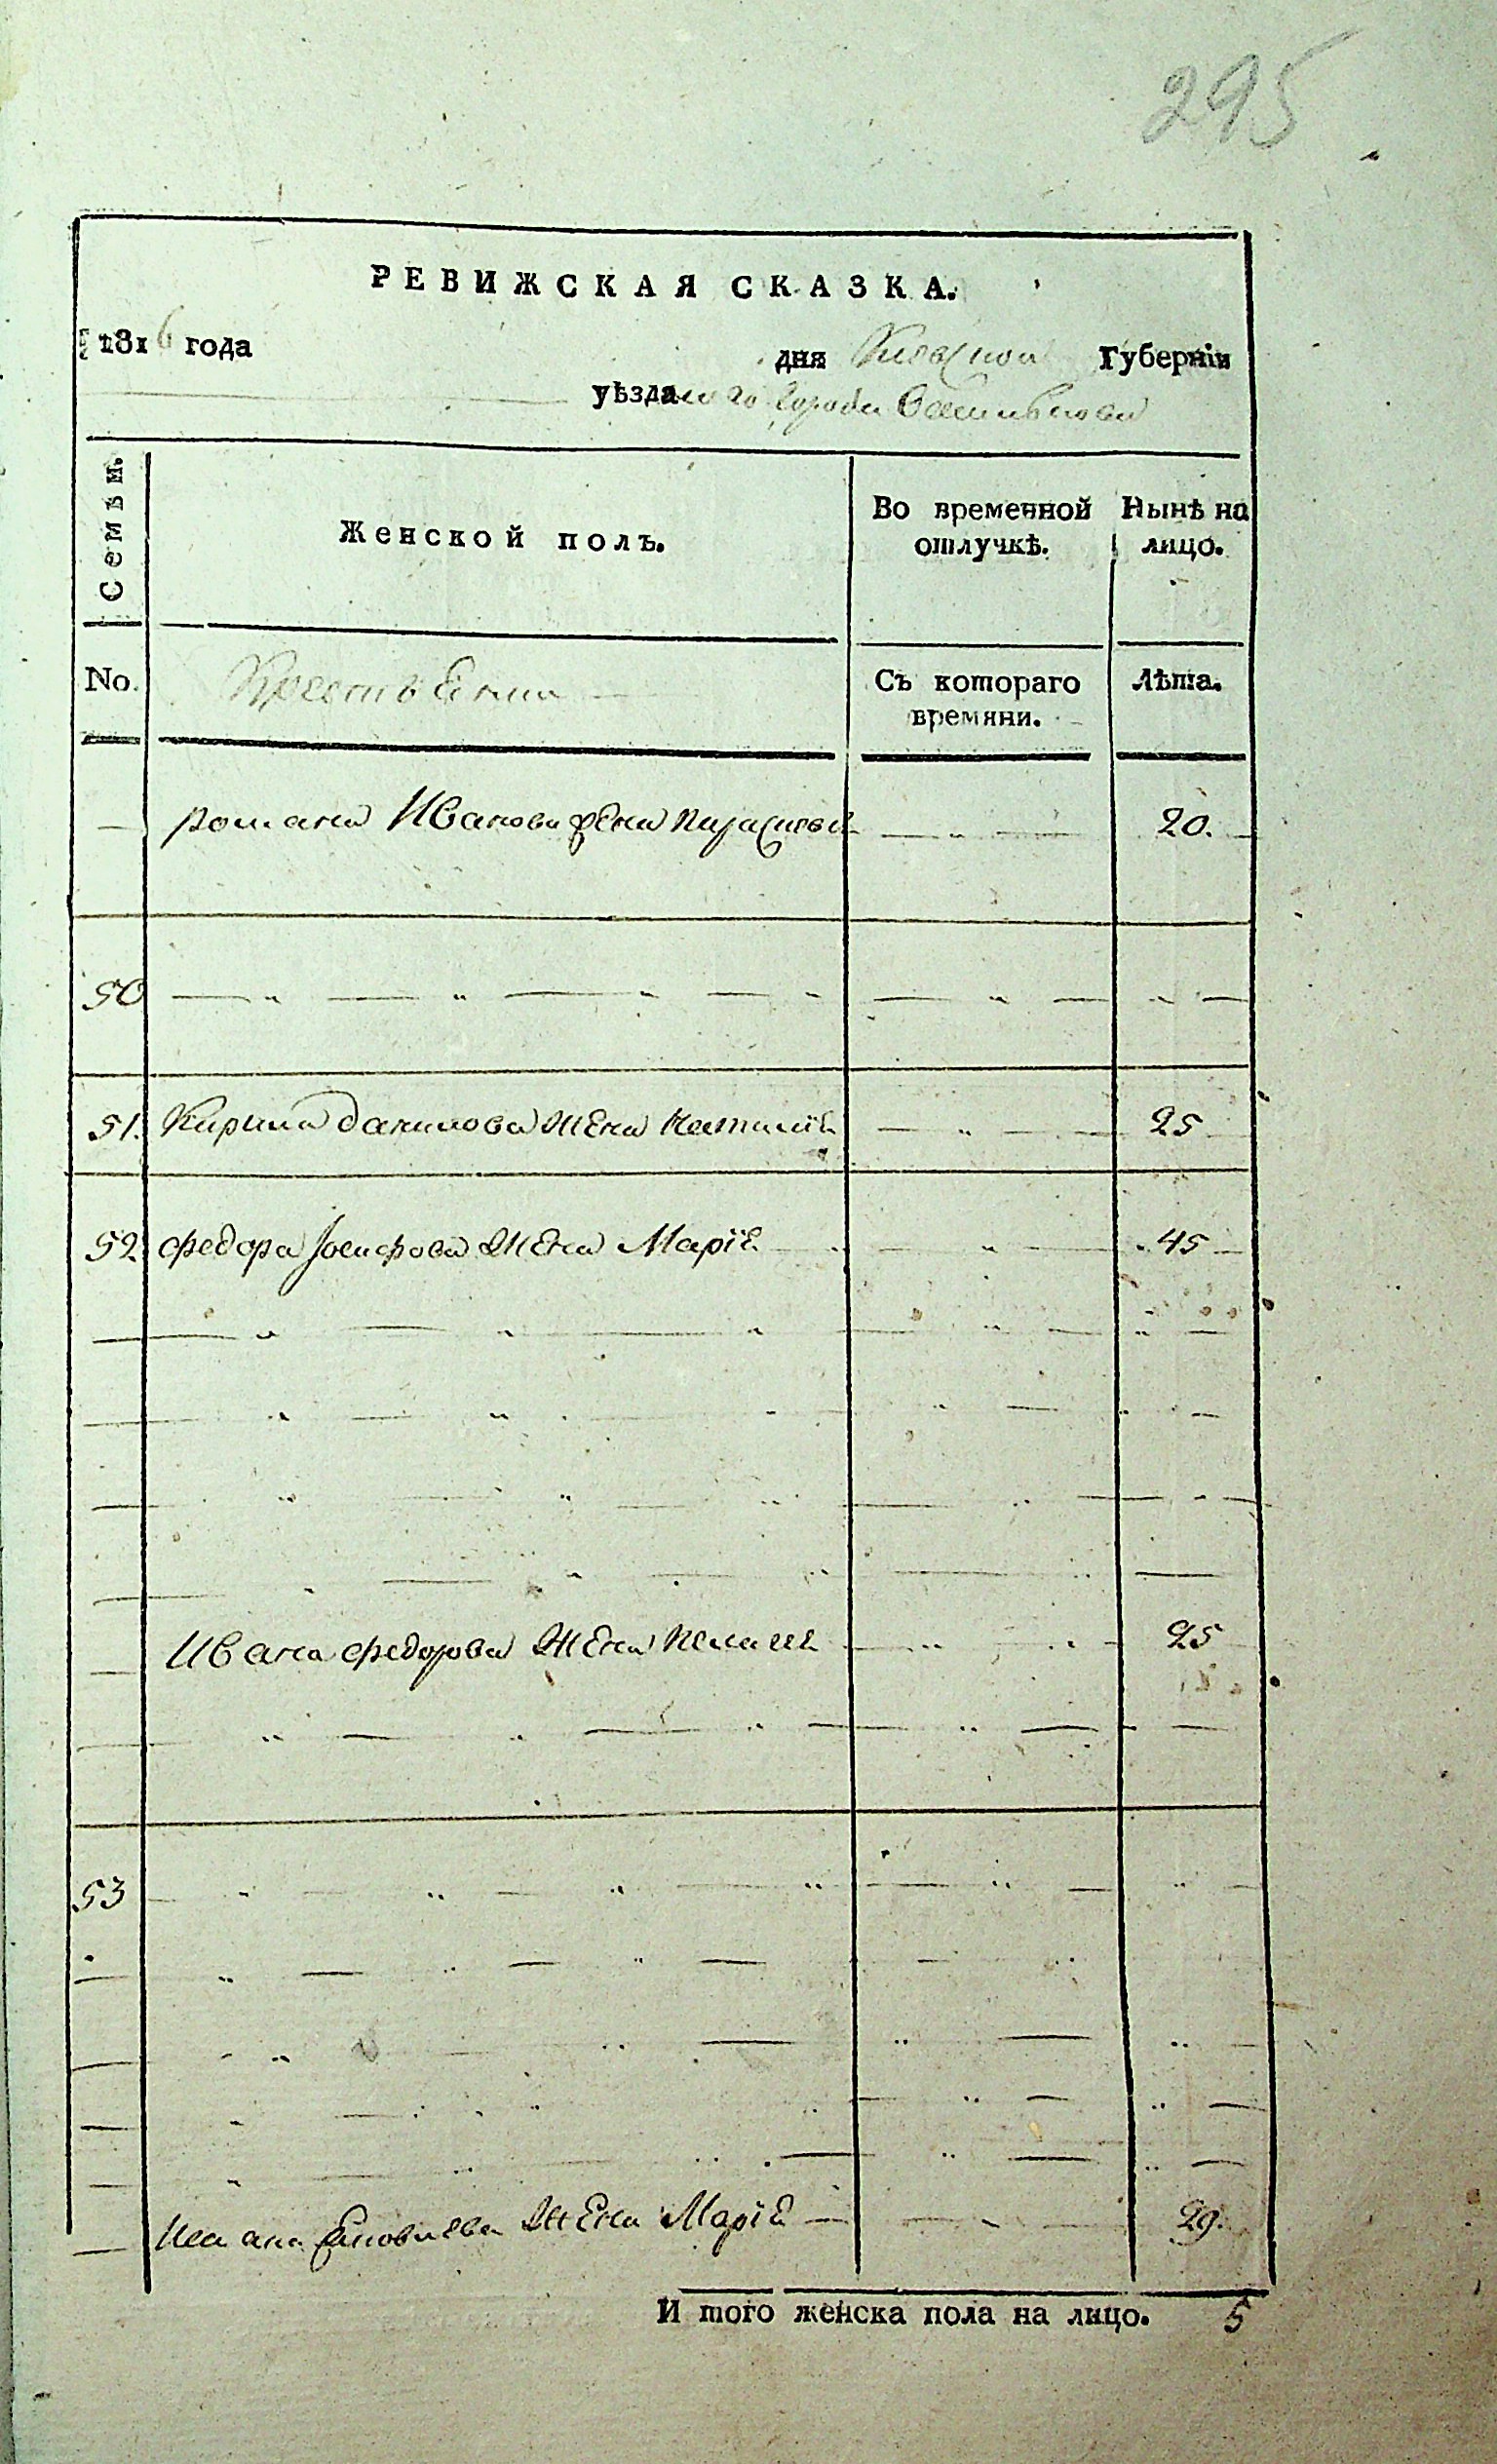 295
РЕВИЖСКАЯ СКАЗКА.
1816 года дня Киевской Губернїи
уѣзднаго города Василькова
Семьи.
Женской полъ.
Во временной отлучкѣ.
Нынѣ на лицо.
No.
Съ котораго времяни.
Лѣта.
Романа Иванова жена 20.
50
51. Кирила Данилова жена Наталия 25
52 Федора Иосифова жена Марїя 45
Ивана Федорова жена 25
53
жена Марїя 29.
И того женска пола на лицо. 5